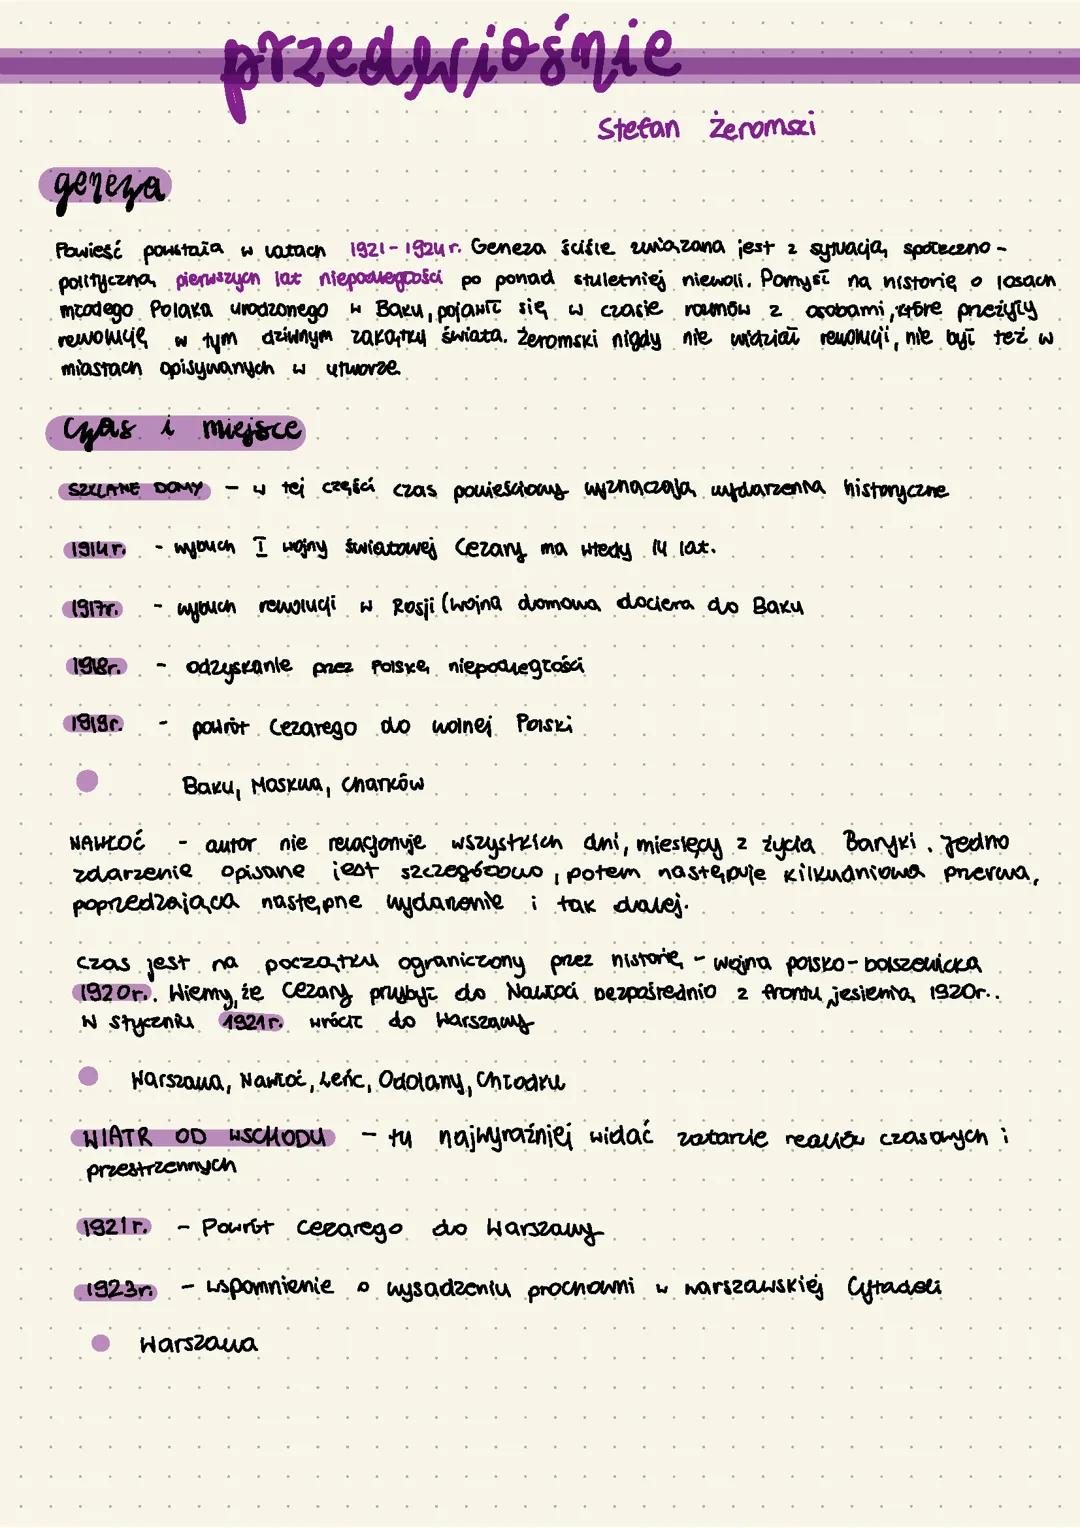 przedwiośnie
Stefan Żeromski
geneza
Powieść powstała w latach 1921-1924r. Geneza ściśle związana jest z sytuacją społeczno-
polityczną pierwszych lat niepodległości po ponad stuletniej niewoli. Pomysł na historię o losach
młodego Polaka urodzonego w Baku, pojawił się w czasie rozmów z osobami, które przeżyły
rewolucję w tym dziwnym zakątku świata. Żeromski nigdy nie widział rewolucji, nie był też w
miastach opisywanych w utworze.
Czas i miejsce
SZKLANE DOMY - w tej części czas powieściowy wyznaczają wydarzenia historyczne
1914r. - wybuch I wojny światowej Cezary ma wtedy 14 lat.
1917r. - wybuch rewolucji w Rosji (wojna domowa dociera do Baku
1918r. - odzyskanie przez Polskę niepodległości
1919r. - powrót Cezarego do wolnej Polski
Baku, Moskwa, Charków
NAWŁOĆ - autor nie relacjonuje wszystkich dni, miesięcy z życia Baryki. Jedno
zdarzenie opisane jest szczegółowo, potem następuje kilkudniowa przerwa,
poprzedzająca następne wydarzenie i tak dalej.
Czas jest na początku ograniczony przez historię - wojna polsko-bolszewicka
1920r.. Wiemy, że Cezary przybył do Nawłoci bezpośrednio z frontu jesienią 1920r..
W styczniu 1921r. wrócił do Warszawy
Warszawa, Nawłoć, Leńc, Odolany, Chłodku
WIATR OD WSCHODU - tu najwyraźniej widać zatarcie realiów czasowych i
przestrzennych
1921r. - Powrót Cezarego do Warszawy
1923r. - wspomnienie o wysadzeniu prochowni w warszawskiej Cytadeli
Warszawa